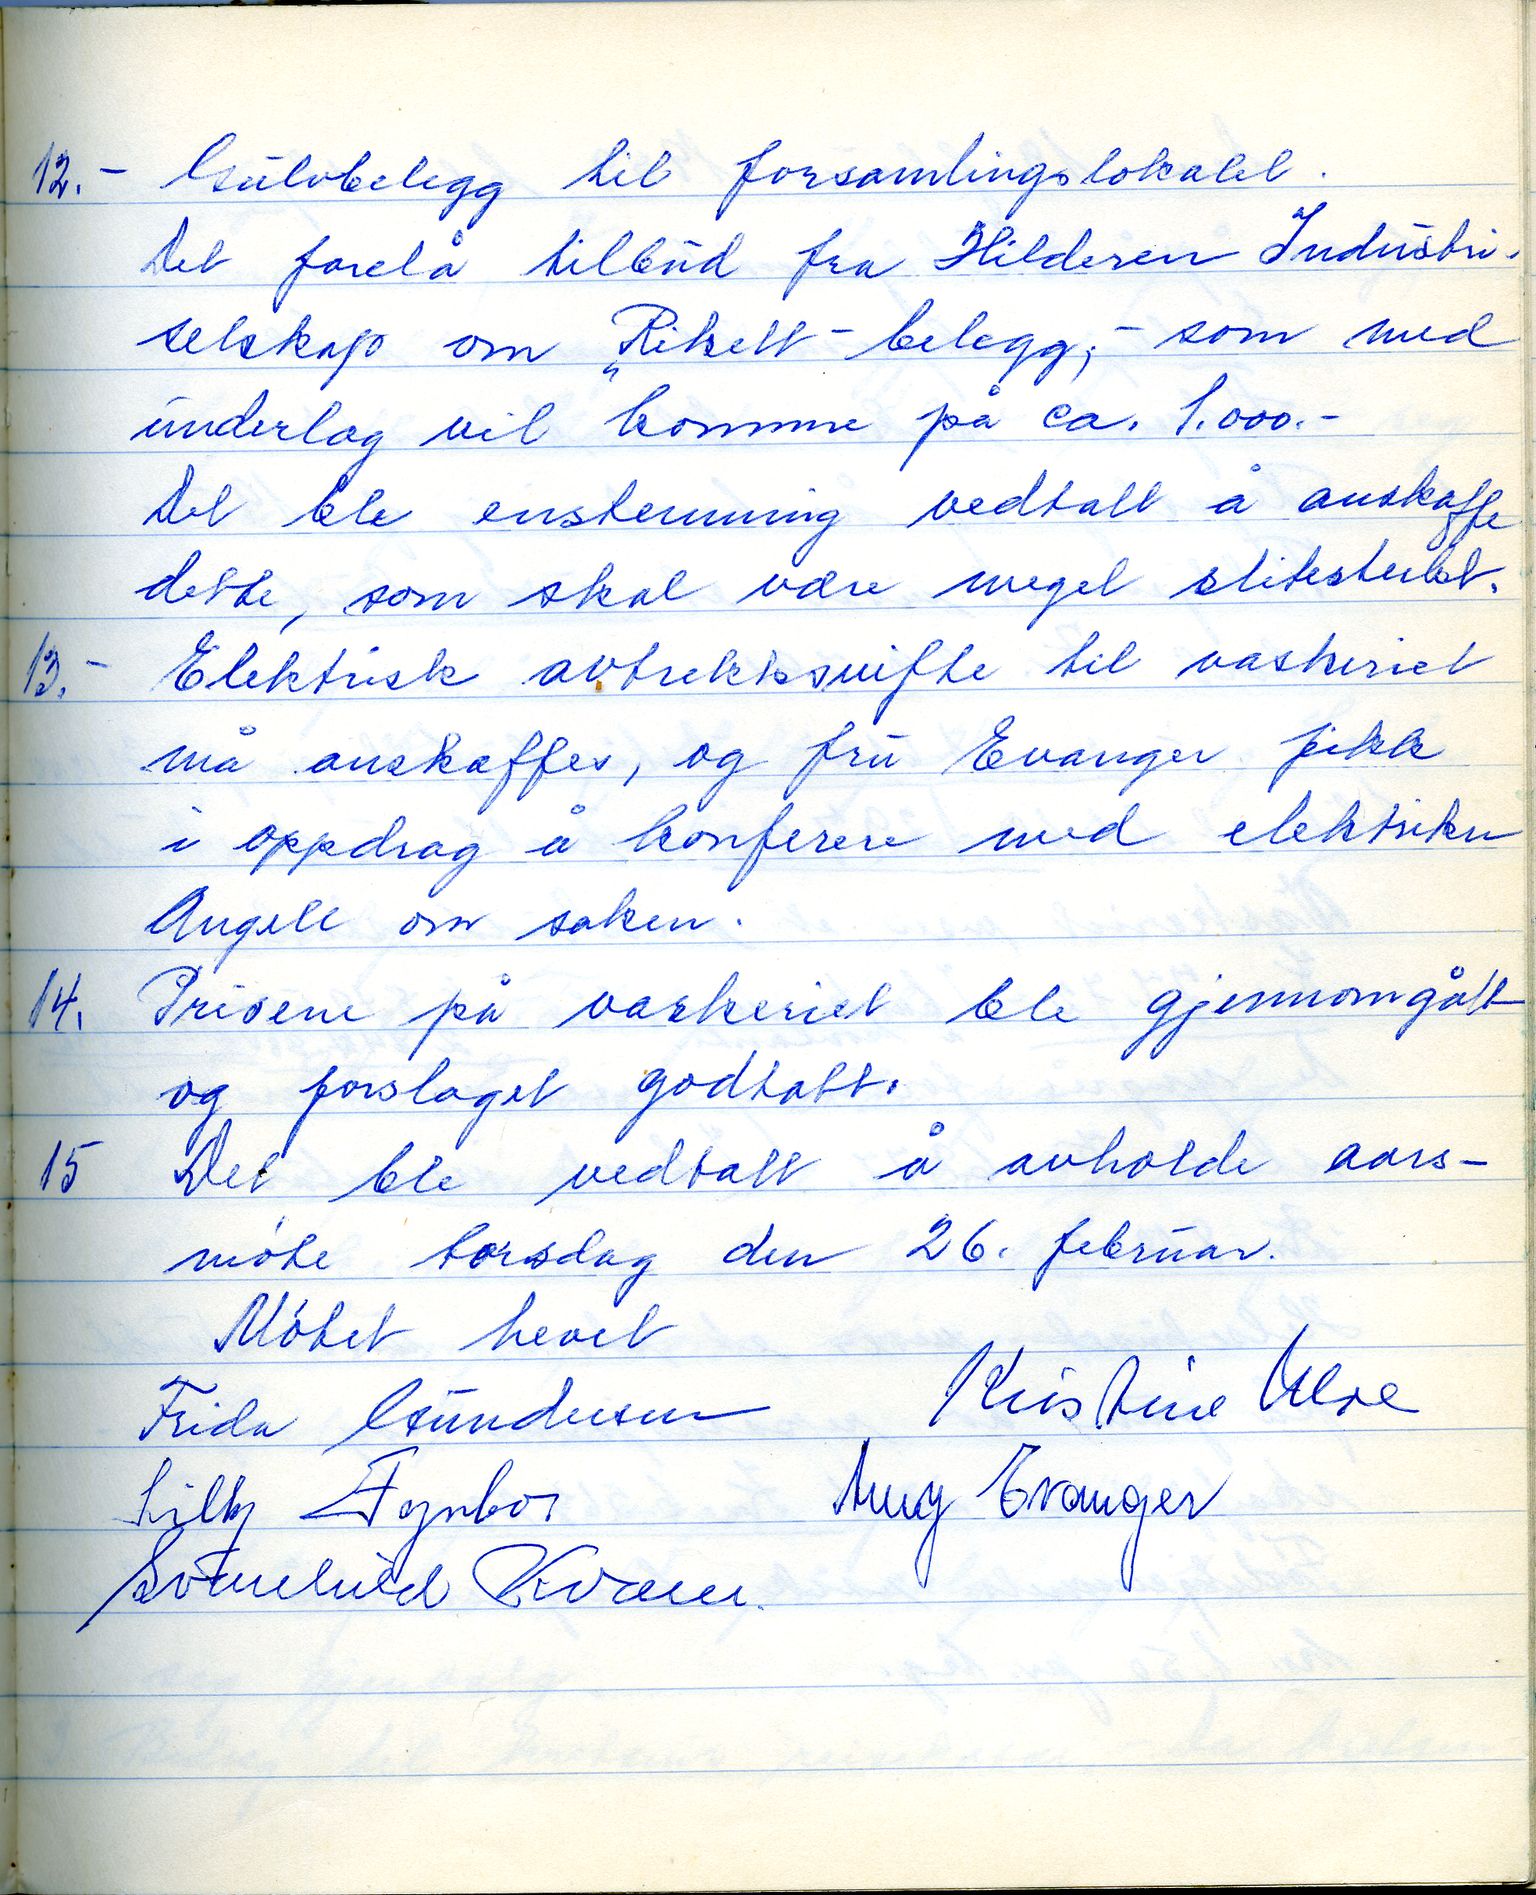 12.- Gulvbelegg til forsamlingslokalet.
Det forelå tilbud fra Hilderen Industri-
selskap om „Rikett-belegg,- som med
underlag vil komme på ca. 1.000.-
Det ble enstemmig vedtatt å anskaffe
dette, som skal være meget slitesterkt.
13.- Elektrisk avtrekksvifte til vaskeriet
må anskaffes, og fru Evanger fikk
i oppdrag å konferere med elektriker
Angell om saken.
14. Prisene på vaskeriet ble gjennomgått
og forslaget godtatt.
15 Det ble vedtatt å avholde aars-
møte torsdag den 26. februar.
Møtet hevet
Frida Gundersen Kristine
Lilly Amy Evanger
Kvam.